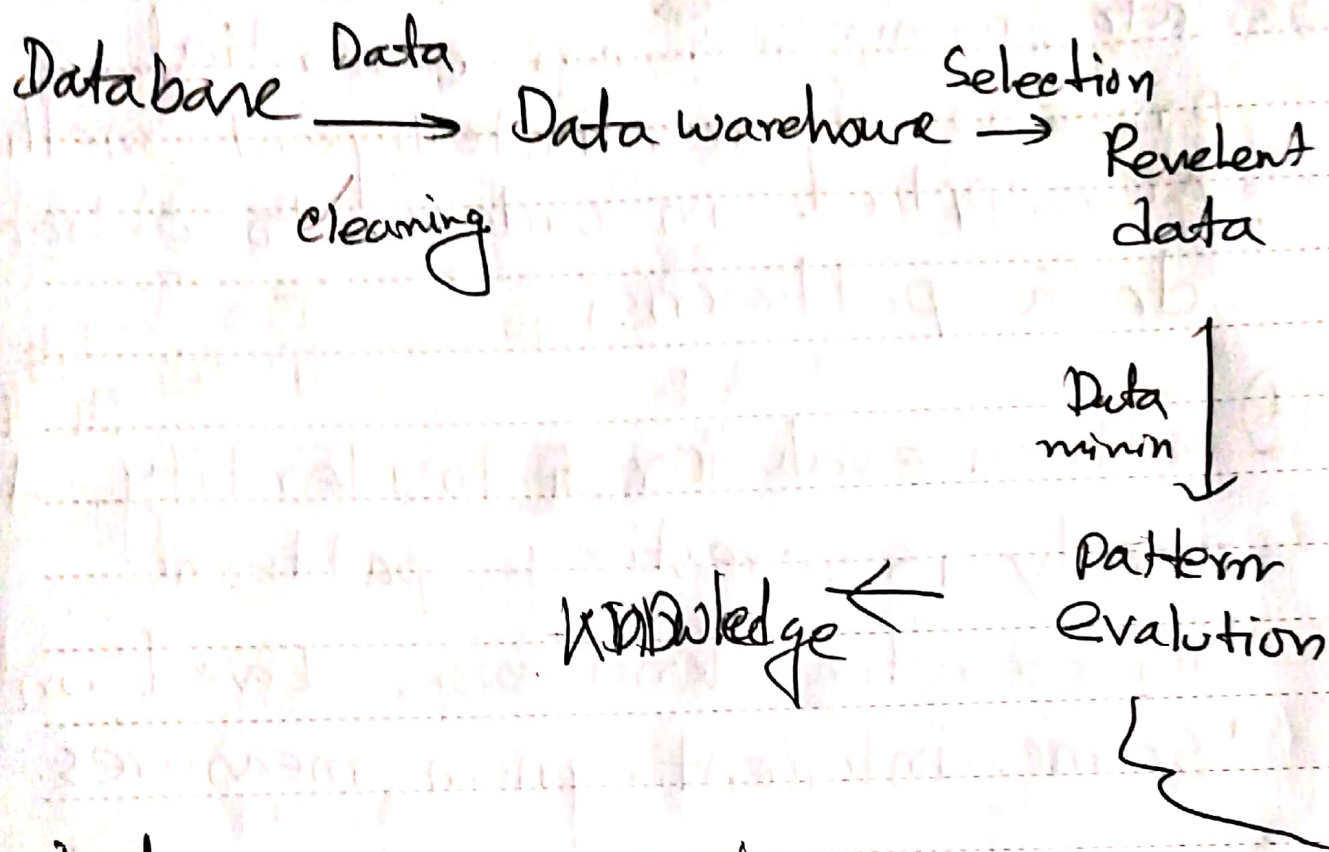 Database Data cleaning → Data warehouse Selection →
Revelent
data
Data
minin
pattern
evalution
Knowledge ←